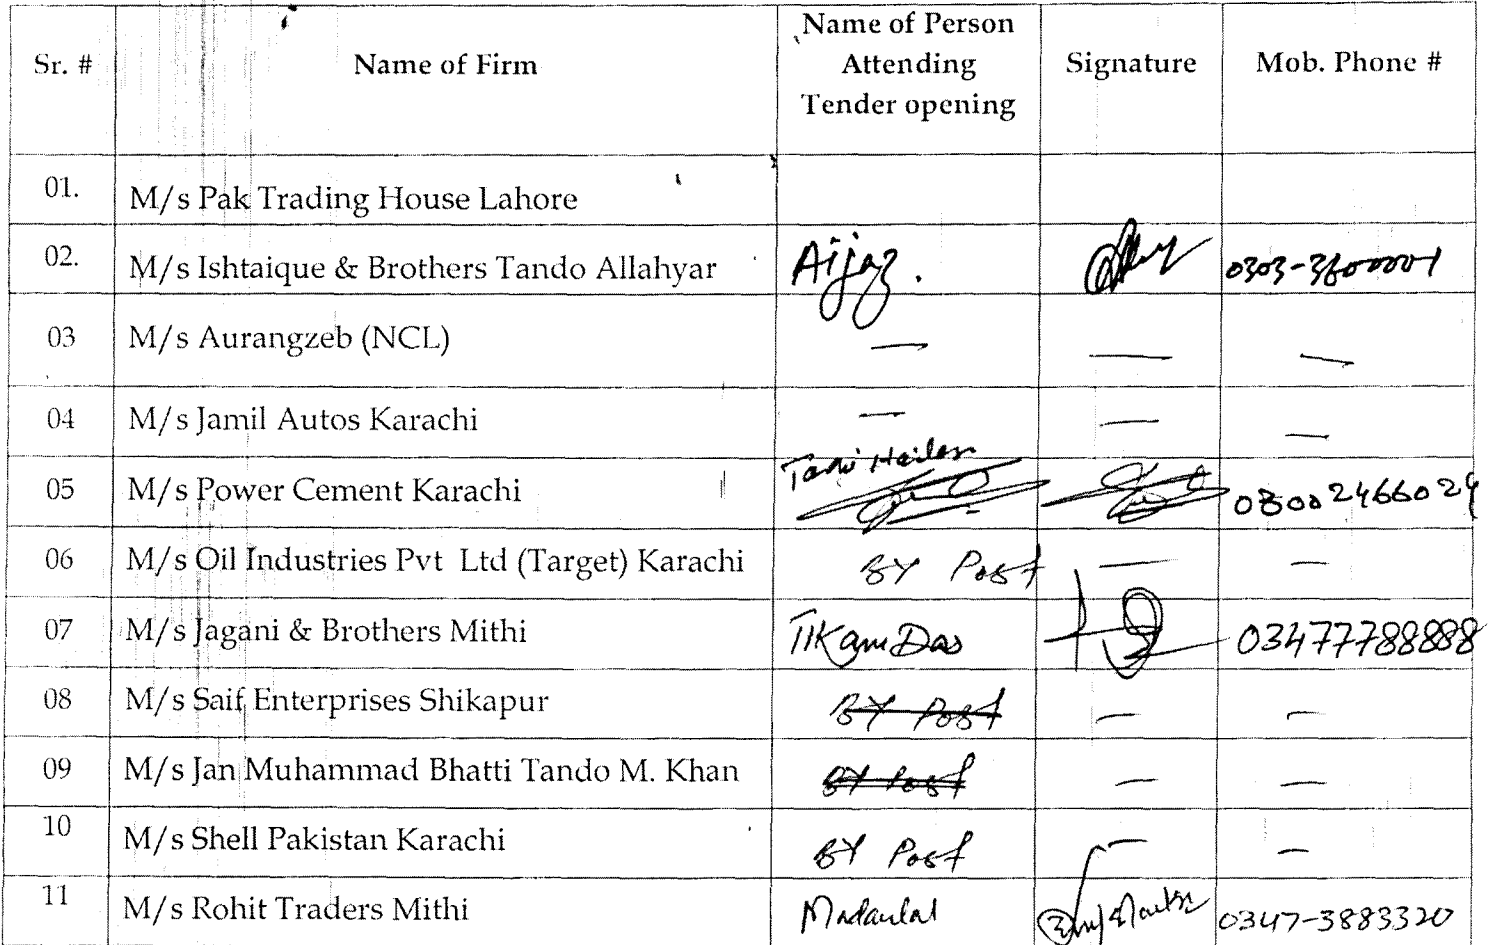 Sr. # Name of Firm Name of Person Attending Tender opening Signature Mob. Phone #
01. M/s Pak Trading House Lahore
02. M/s Ishtaique & Brothers Tando Allahyar Aijaz.
03 M/s Aurangzeb (NCL) — — —
04 M/s Jamil Autos Karachi — — —
05 M/s Power Cement Karachi 03002466024
06 M/s Oil Industries Pvt Ltd (Target) Karachi BY Post — —
07 M/s Jagani & Brothers Mithi TIKam Das 03477788888
08 M/s Saif Enterprises Shikapur BY Post — —
09 M/s Jan Muhammad Bhatti Tando M. Khan BY Post — —
10 M/s Shell Pakistan Karachi BY Post — —
11 M/s Rohit Traders Mithi 0347-3883320